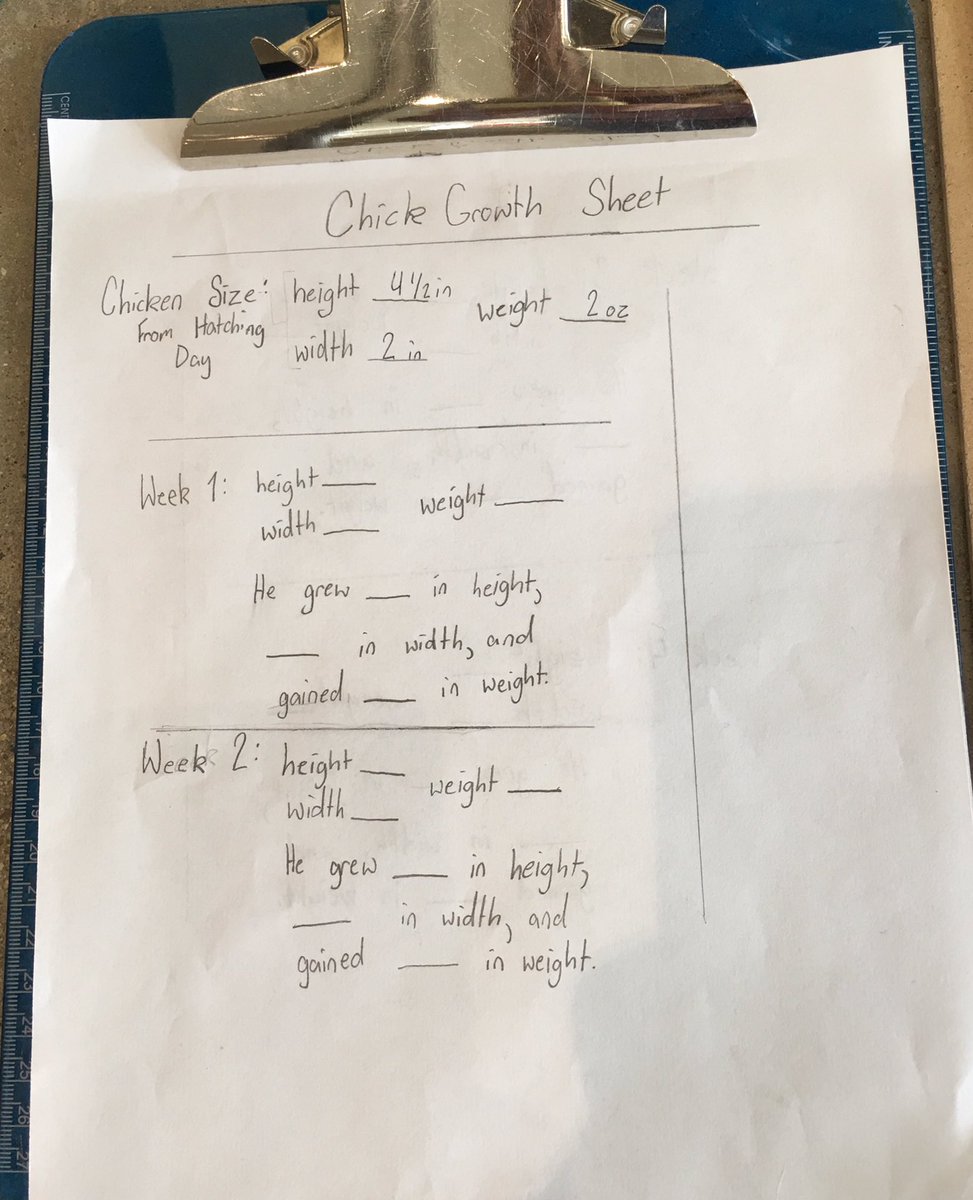 Chick Growth Sheet
Chicken Size: height 4 1/2 in weight 2 oz
From Hatching
Day width 2 in
Week 1: height ____ weight ____
width ____
He grew ____ in height,
____ in width, and
gained ____ in weight.
Week 2: height ____ weight ____
width ____
He grew ____ in height,
____ in width, and
gained ____ in weight.